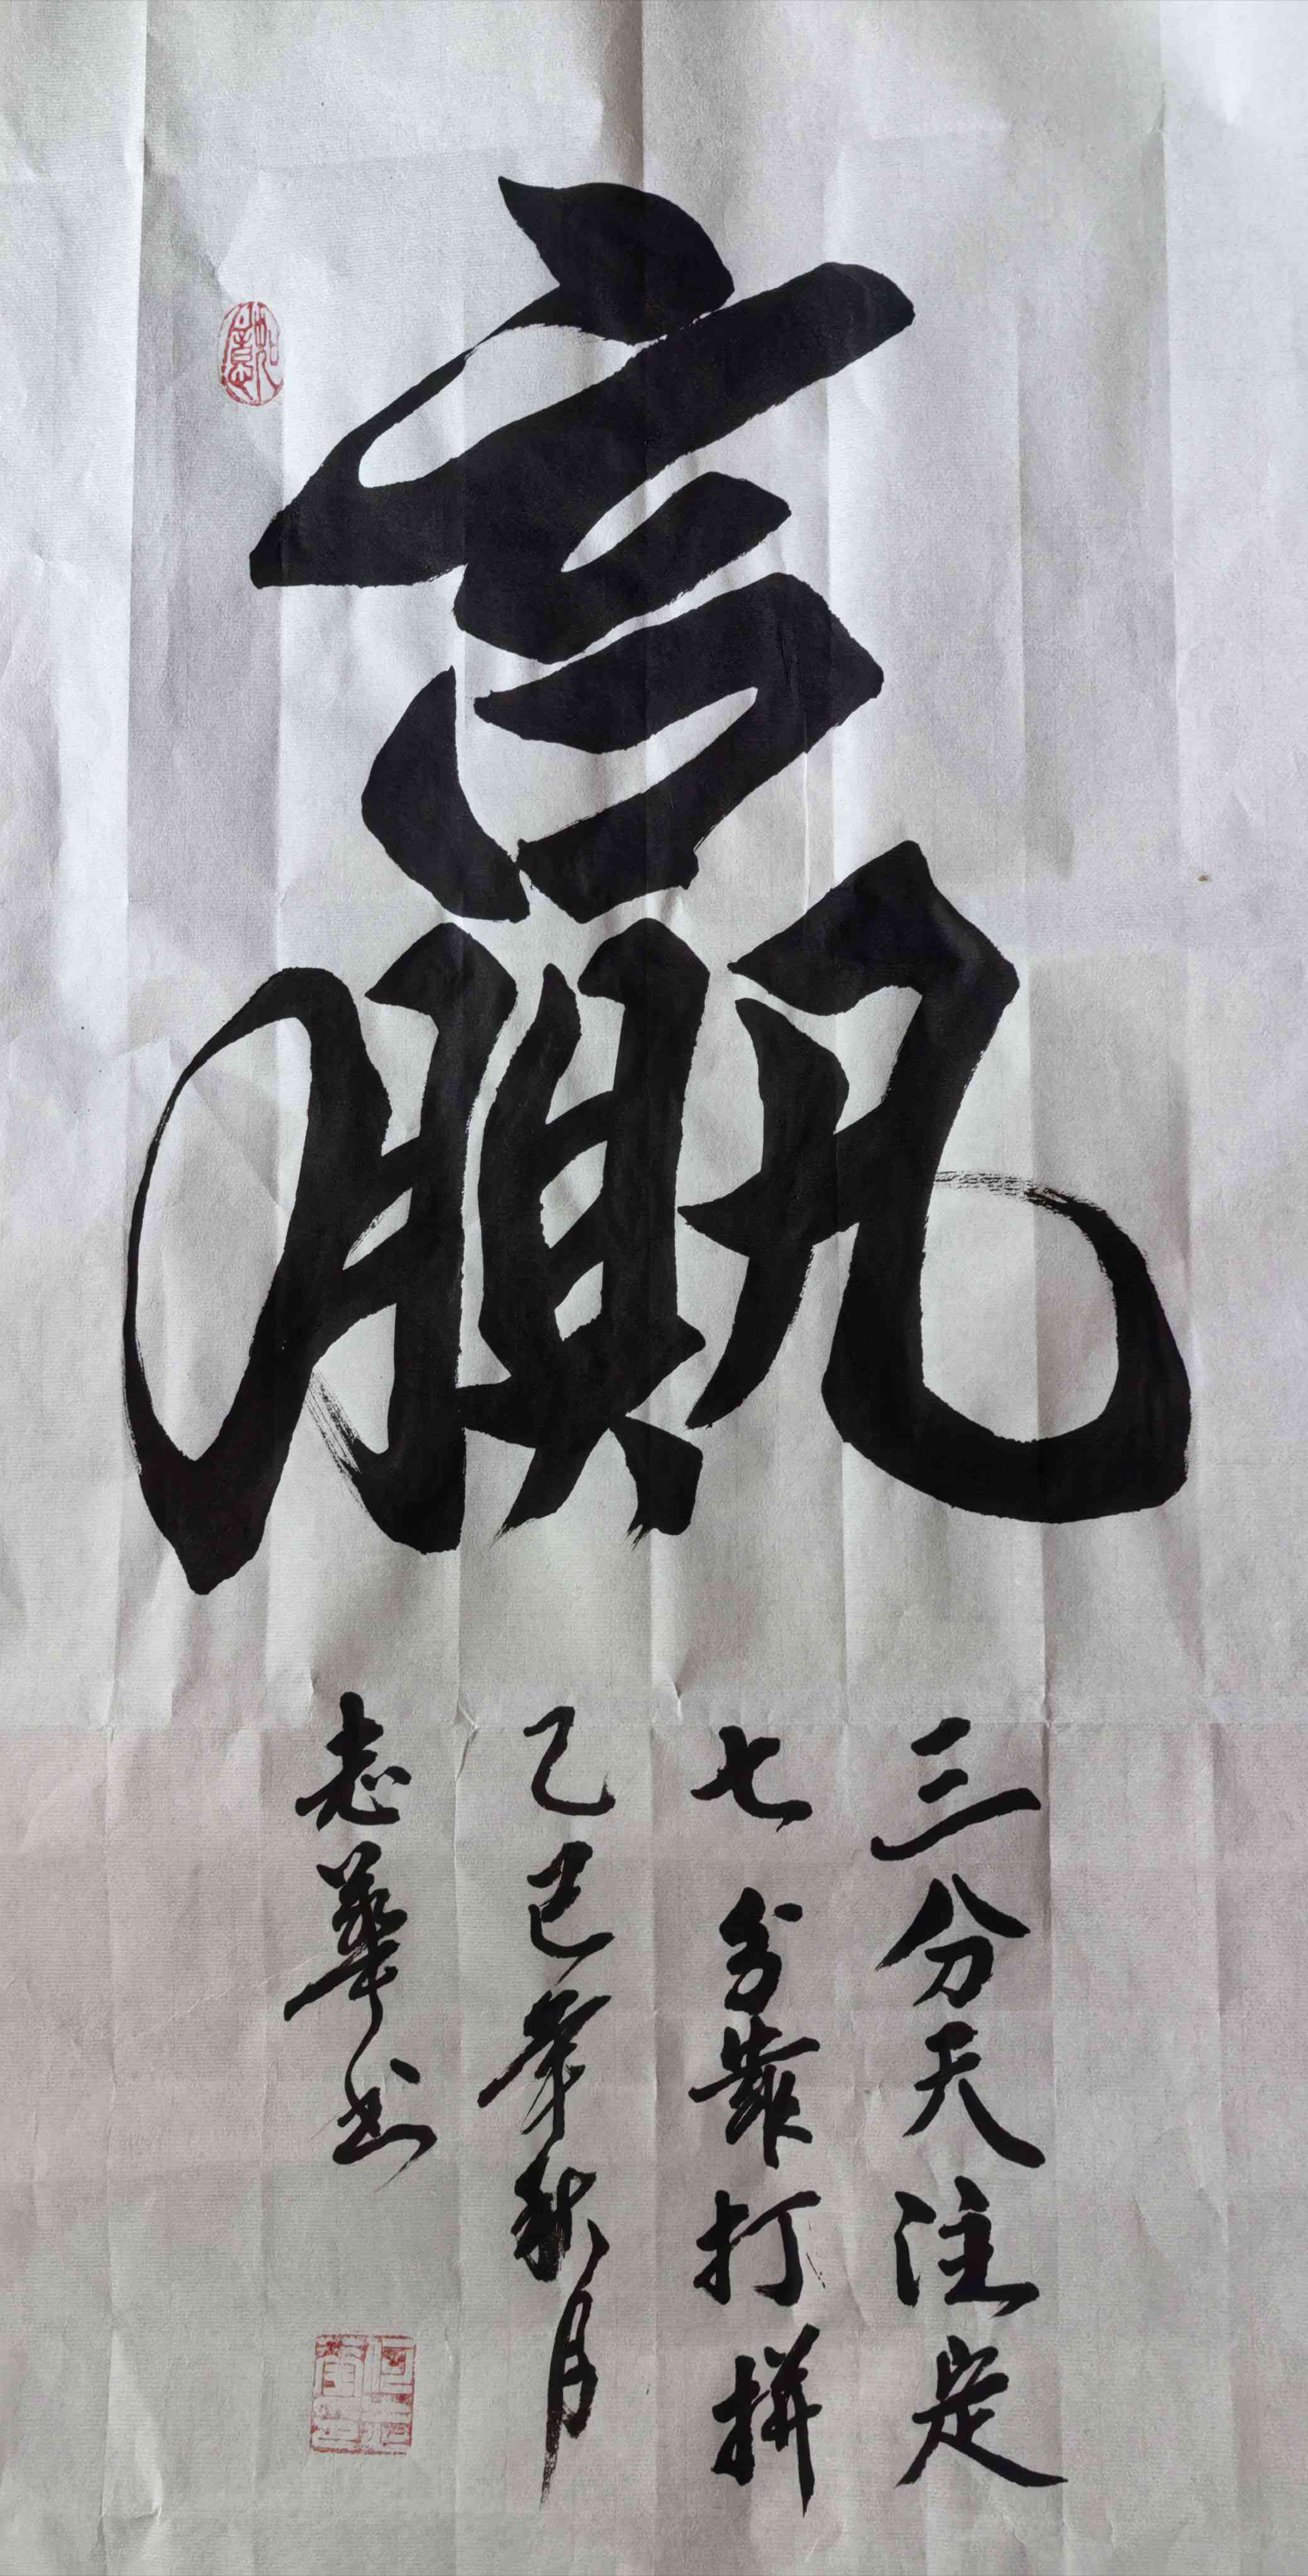 赢
三分天注定
七分靠打拼
乙巳年秋月
志华书
如意